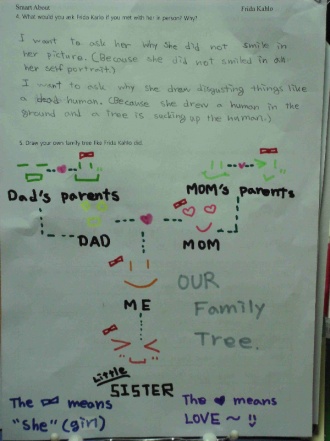 Smart About Frida Kahlo
4. What would you ask Frida Karlo if you met with her in person? Why?
I want to ask her why she did not smile in
her picture. (Because she did not smiled in all
her self portrait.)
I want to ask why she drew disgusting things like
a dead human. (Because she drew a human in the
ground and a tree is sucking up the human.)
5. Draw your own family tree like Frida Kahlo did.
Dad's parents
MOM's parents
DAD
MOM
ME
OUR
Family
Tree.
Little
SISTER
The means
"she" (girl)
The ♥ means
LOVE ~